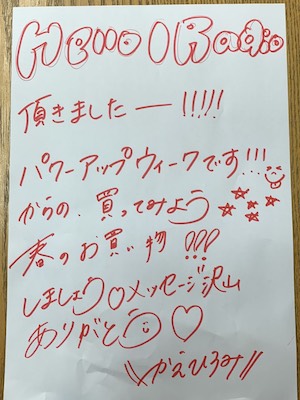 Hello! Radio
頂きましたー!!!!!
パワーアップウィークです!!!
からの、買ってみよう☆☆☆☆☆
春のお買い物!!!
しましょう♡メッセージ沢山
ありがとう♡
\\かえひろみ//